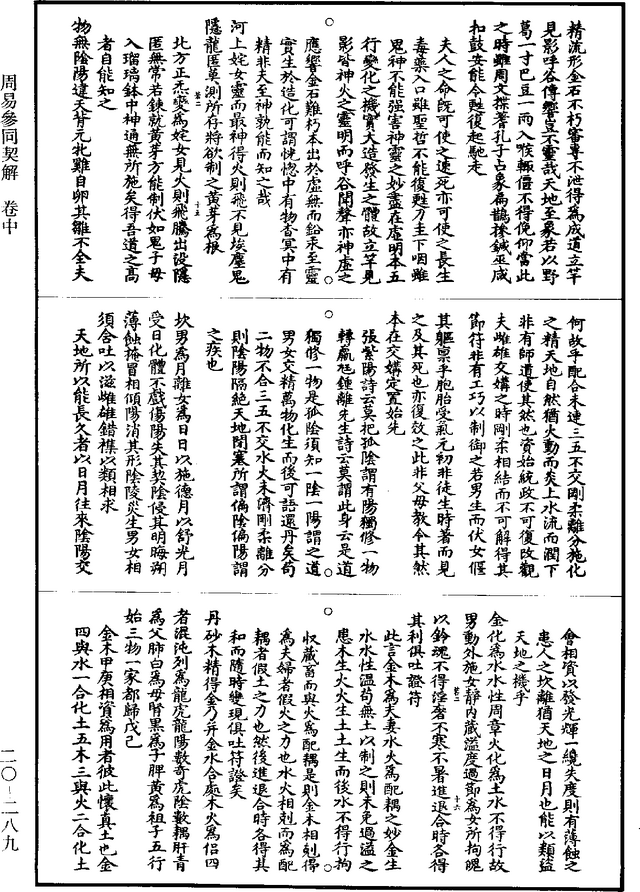 周易參同契解　卷中
二〇-二八九
精流形金石不朽審專不泄得為成道立竿
見影呼谷傳響豈不靈哉天地至象若以野
葛一寸巴豆一兩入喉輒僵不得俛仰當此
之時雖周文揲蓍孔子占象扁鵲操鍼巫咸
扣鼓安能令甦復起馳走
夫人之命既可使之速死亦可使之長生
毒藥入口雖聖哲不能復甦刀圭下咽雖
鬼神不能強害神靈之妙盡在虛明本五
行變化之機實大造發生之體故立竿見
影皆神火之靈明而呼谷聞聲亦神虛之
應響金石難朽本出於虛無而鉛汞至靈
實生於造化可謂恍惚中有物杳冥中有
精非夫至神孰能而知之哉
河上姹女靈而最神得火則飛不見埃塵鬼
隱龍匿莫測所存將欲制之黃芽為根
若二　十五
北方正炁變為姹女見火則飛騰出沒隱
匿無常若鍊就黃芽方能制伏如鬼子母
入瑠璃鉢中神通無所施矣得吾道之高
者自能知之
物無陰陽違天背元牝雞自卵其雛不全夫
何故乎配合未連三五不交剛柔離分施化
之精天地自然猶火動而炎上水流而潤下
非有師道使其然也資始統政不可復改觀
夫雌雄交媾之時剛柔相結而不可解得其
節符非有工巧以制御之若男生而伏女偃
其軀稟乎胞胎受氣元初非徒生時著而見
之及其死也亦復效之此非父母教令其然
本在交媾定置始先
張紫陽詩云莫把孤陰謂有陽獨修一物
轉羸尪鍾離先生詩云莫謂此身云是道
獨修一物是孤陰須知一陰一陽謂之道
男女交精萬物化生而後可語還丹矣苟
二物不合三五不交水火未濟剛柔離分
則陰陽隔絕天地閉塞所謂偏陰偏陽謂
之疾也
坎男為月離女為日日以施德月以舒光月
受日化體不戲傷陽失其契陰侵其明晦朔
薄蝕掩冒相傾陽消其形陰陵災生男女相
須含吐以滋雌雄錯襍以類相求
天地所以能長久者以日月往來陰陽交
會相資以發光輝一纏失度則有薄蝕之
患人之坎離猶天地之日月也能以類盜
天地之機乎
金化為水水性周章火化為土水不得行故
男動外施女靜內藏溢度過節為女所拘魄
以鈐魂不得淫奢不寒不暑進退合時各得
其利俱吐證符
若二　十六
此言金木為夫妻水火為配耦之妙金生
水水性溫苟無土以制之則未免過溢之
患木生火火生土土生而後水不得行拘
收蔵畜而與火為配耦是則金木相剋得
為夫婦者假火之力也水火相剋而為配
耦者假土之力也然後進退合時各得其
和而隨時變現俱吐符證矣
丹砂木精得金乃并金水合處木火為侶四
者混沌列為龍虎龍陽數奇虎陰數耦肝青
為父肺白為母腎黑為子脾黃為祖子五行
始三物一家都歸戊己
金木甲庚相資為用者彼此懷真土也金
四與水一合化土五木三與火二合化土